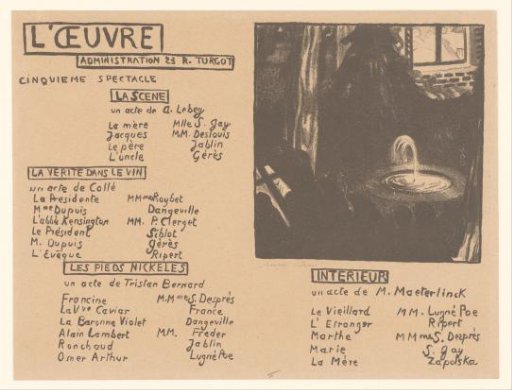 L'ŒUVRE
ADMINISTRATION 23 R. TURGOT
CINQUIEME SPECTACLE
LA SCENE
un acte de A. Lebey
La mère Mlle S. Gay
Jacques MM. Deslouis
Le père Jablin
L'uncle Gérès
LA VERITE DANS LE VIN
un acte de Collé
La Presidente MMmes Roybet
Mme Dupuis Dangeville
L'abbé Kensington MM. P. Clerget
Le Président Siblot
M. Dupuis Gérès
L'Evêque Ripert
LES PIEDS NICKELES
un acte de Tristan Bernard
Francine MMmes S. Després
La Vve Caviar France
La Baronne Violet Dangeville
Alain Lambert MM. Freder
Ronchaud Jablin
Omer Arthur Lugné Poe
INTERIEUR
un acte de M. Maeterlinck
Le Vieillard MM. Lugné Poe
L'Etranger Ripert
Marthe MMmes S. Després
Marie S. Gay
La Mère Zapolska